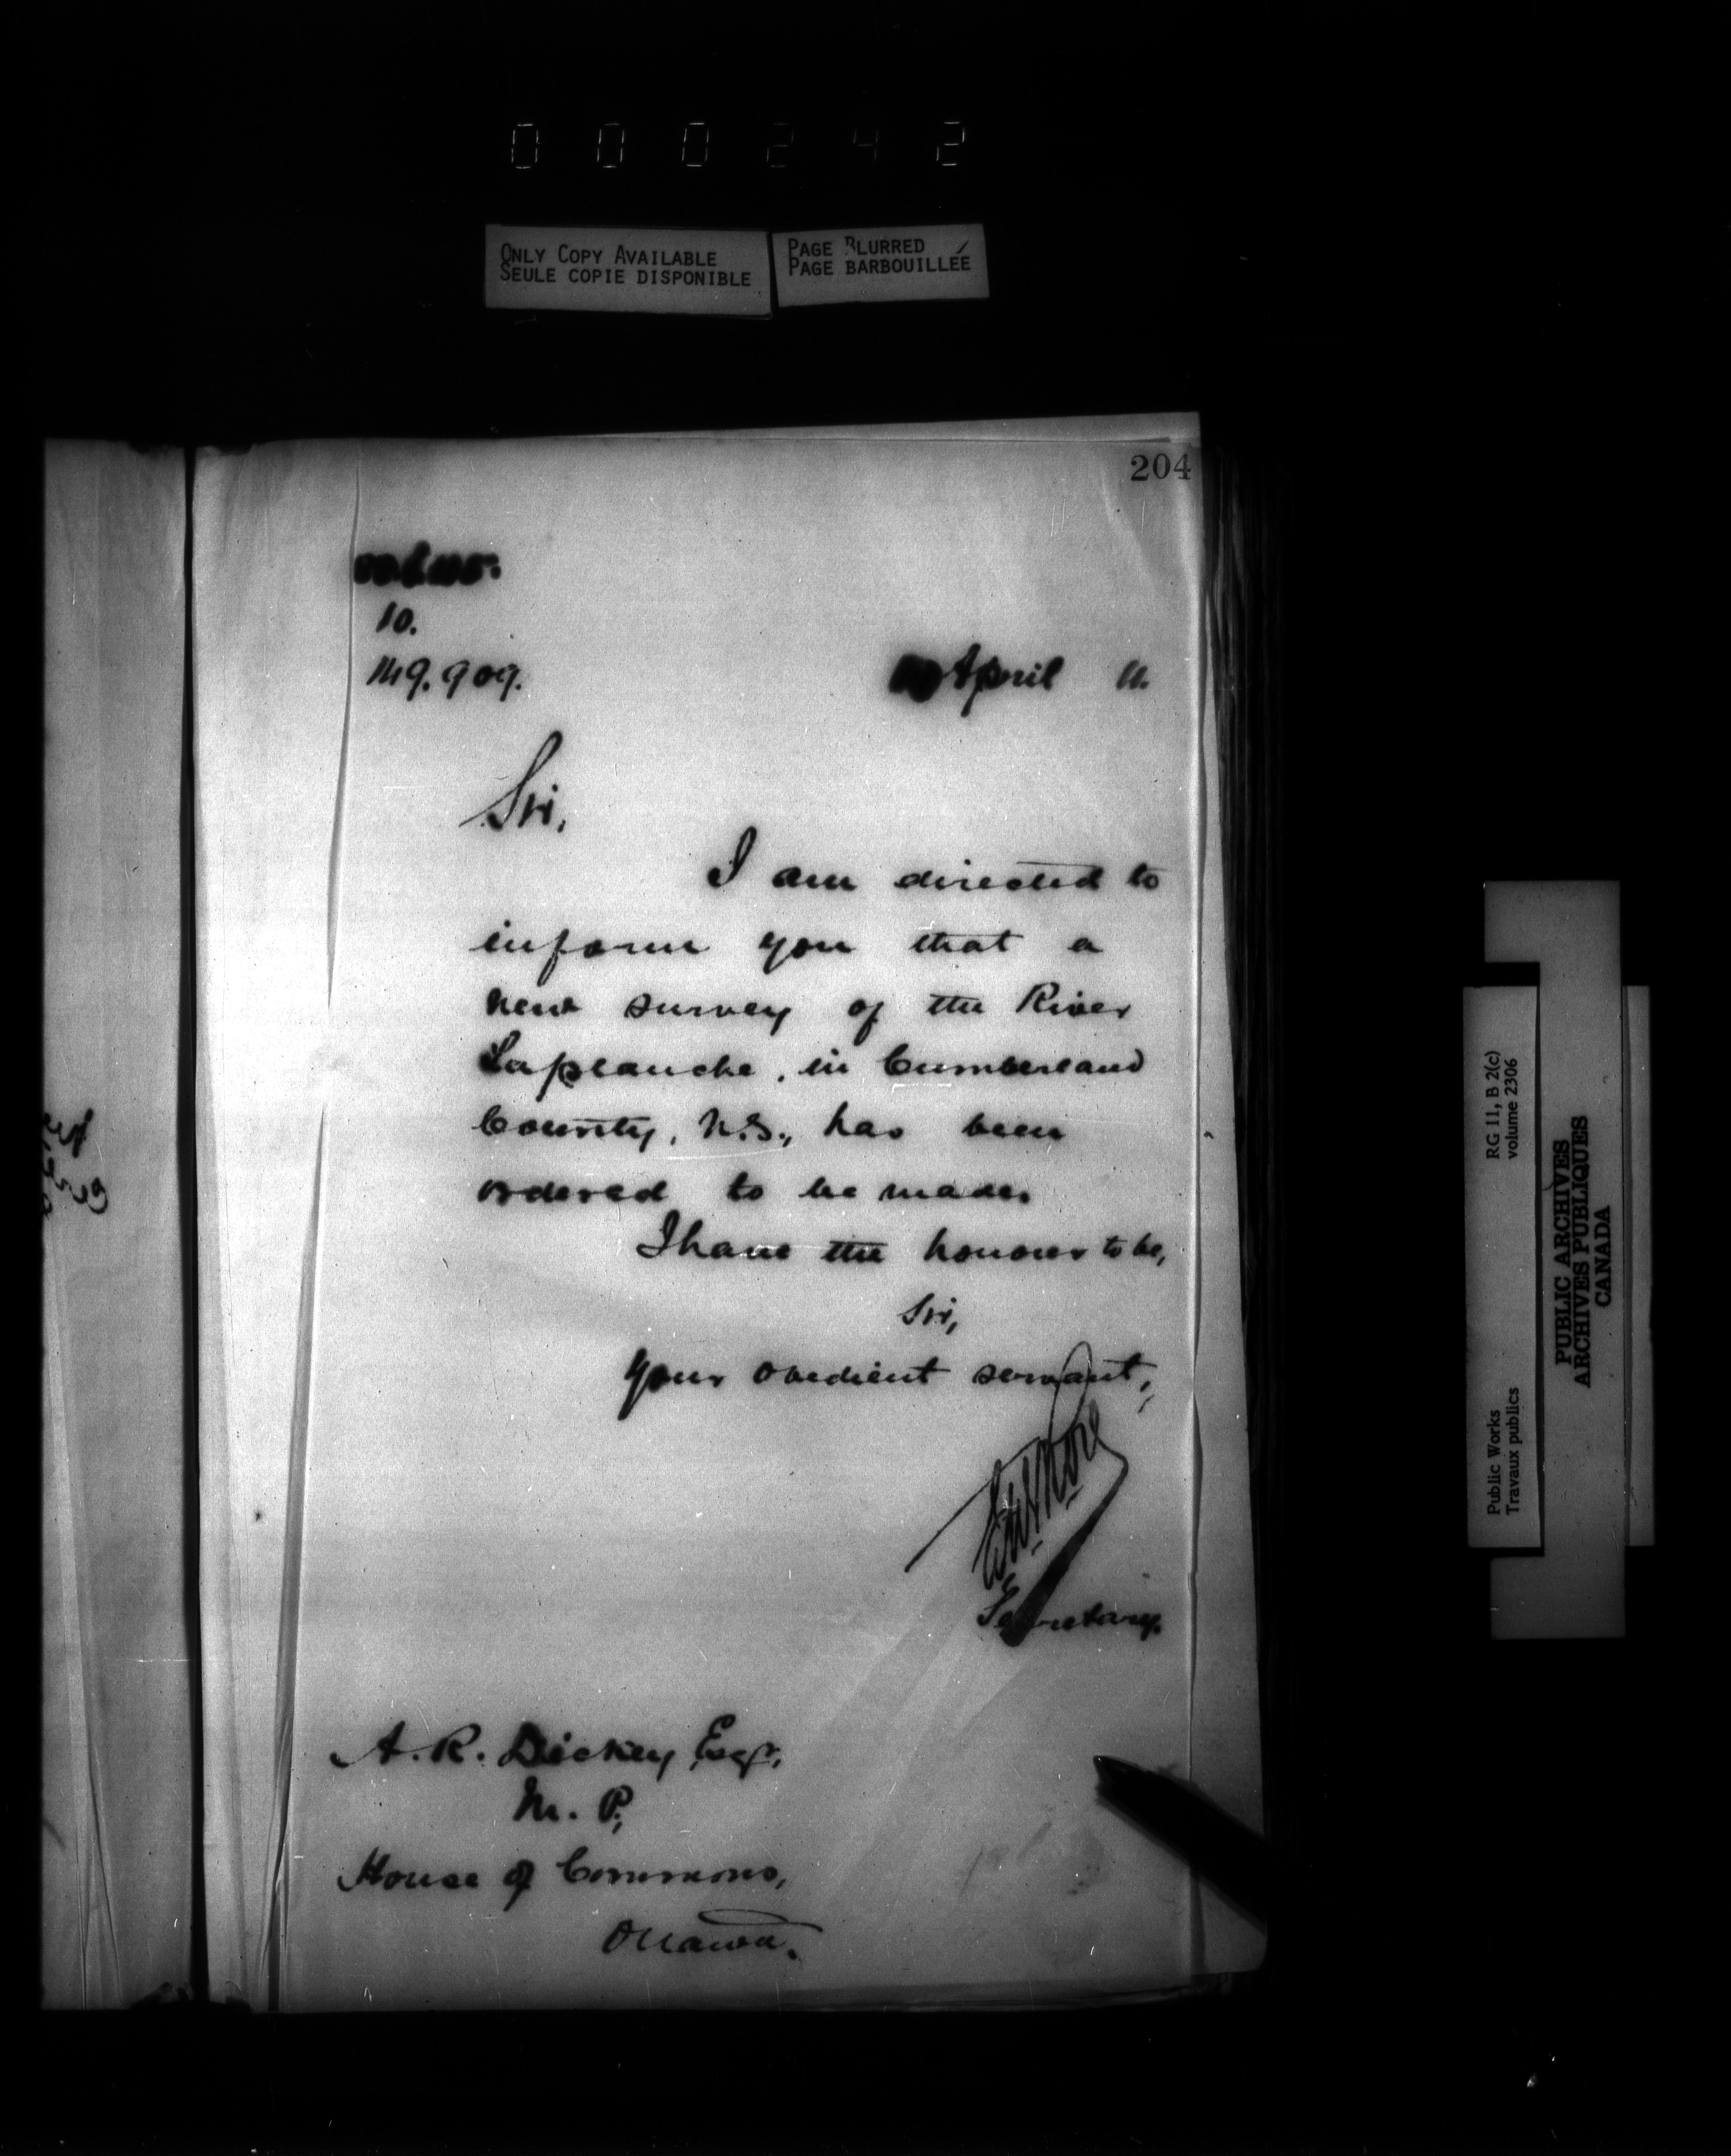 000242
ONLY COPY AVAILABLE
SEULE COPIE DISPONIBLE
PAGE BLURRED
PAGE BARBOUILLÉE
204
10.
149.909.
April 11.
Sir,
I am directed to
inform you that a
new survey of the River
Laplanche, in Cumberland
County, N.S., has been
ordered to be made.
I have the honour to be,
Sir,
Your obedient servant,
Secretary.
A. R. Dickey Esqr,
M. P.,
House of Commons,
Ottawa.
RG 11, B 2(c)
volume 2306
Public Works
Travaux publics
PUBLIC ARCHIVES
ARCHIVES PUBLIQUES
CANADA